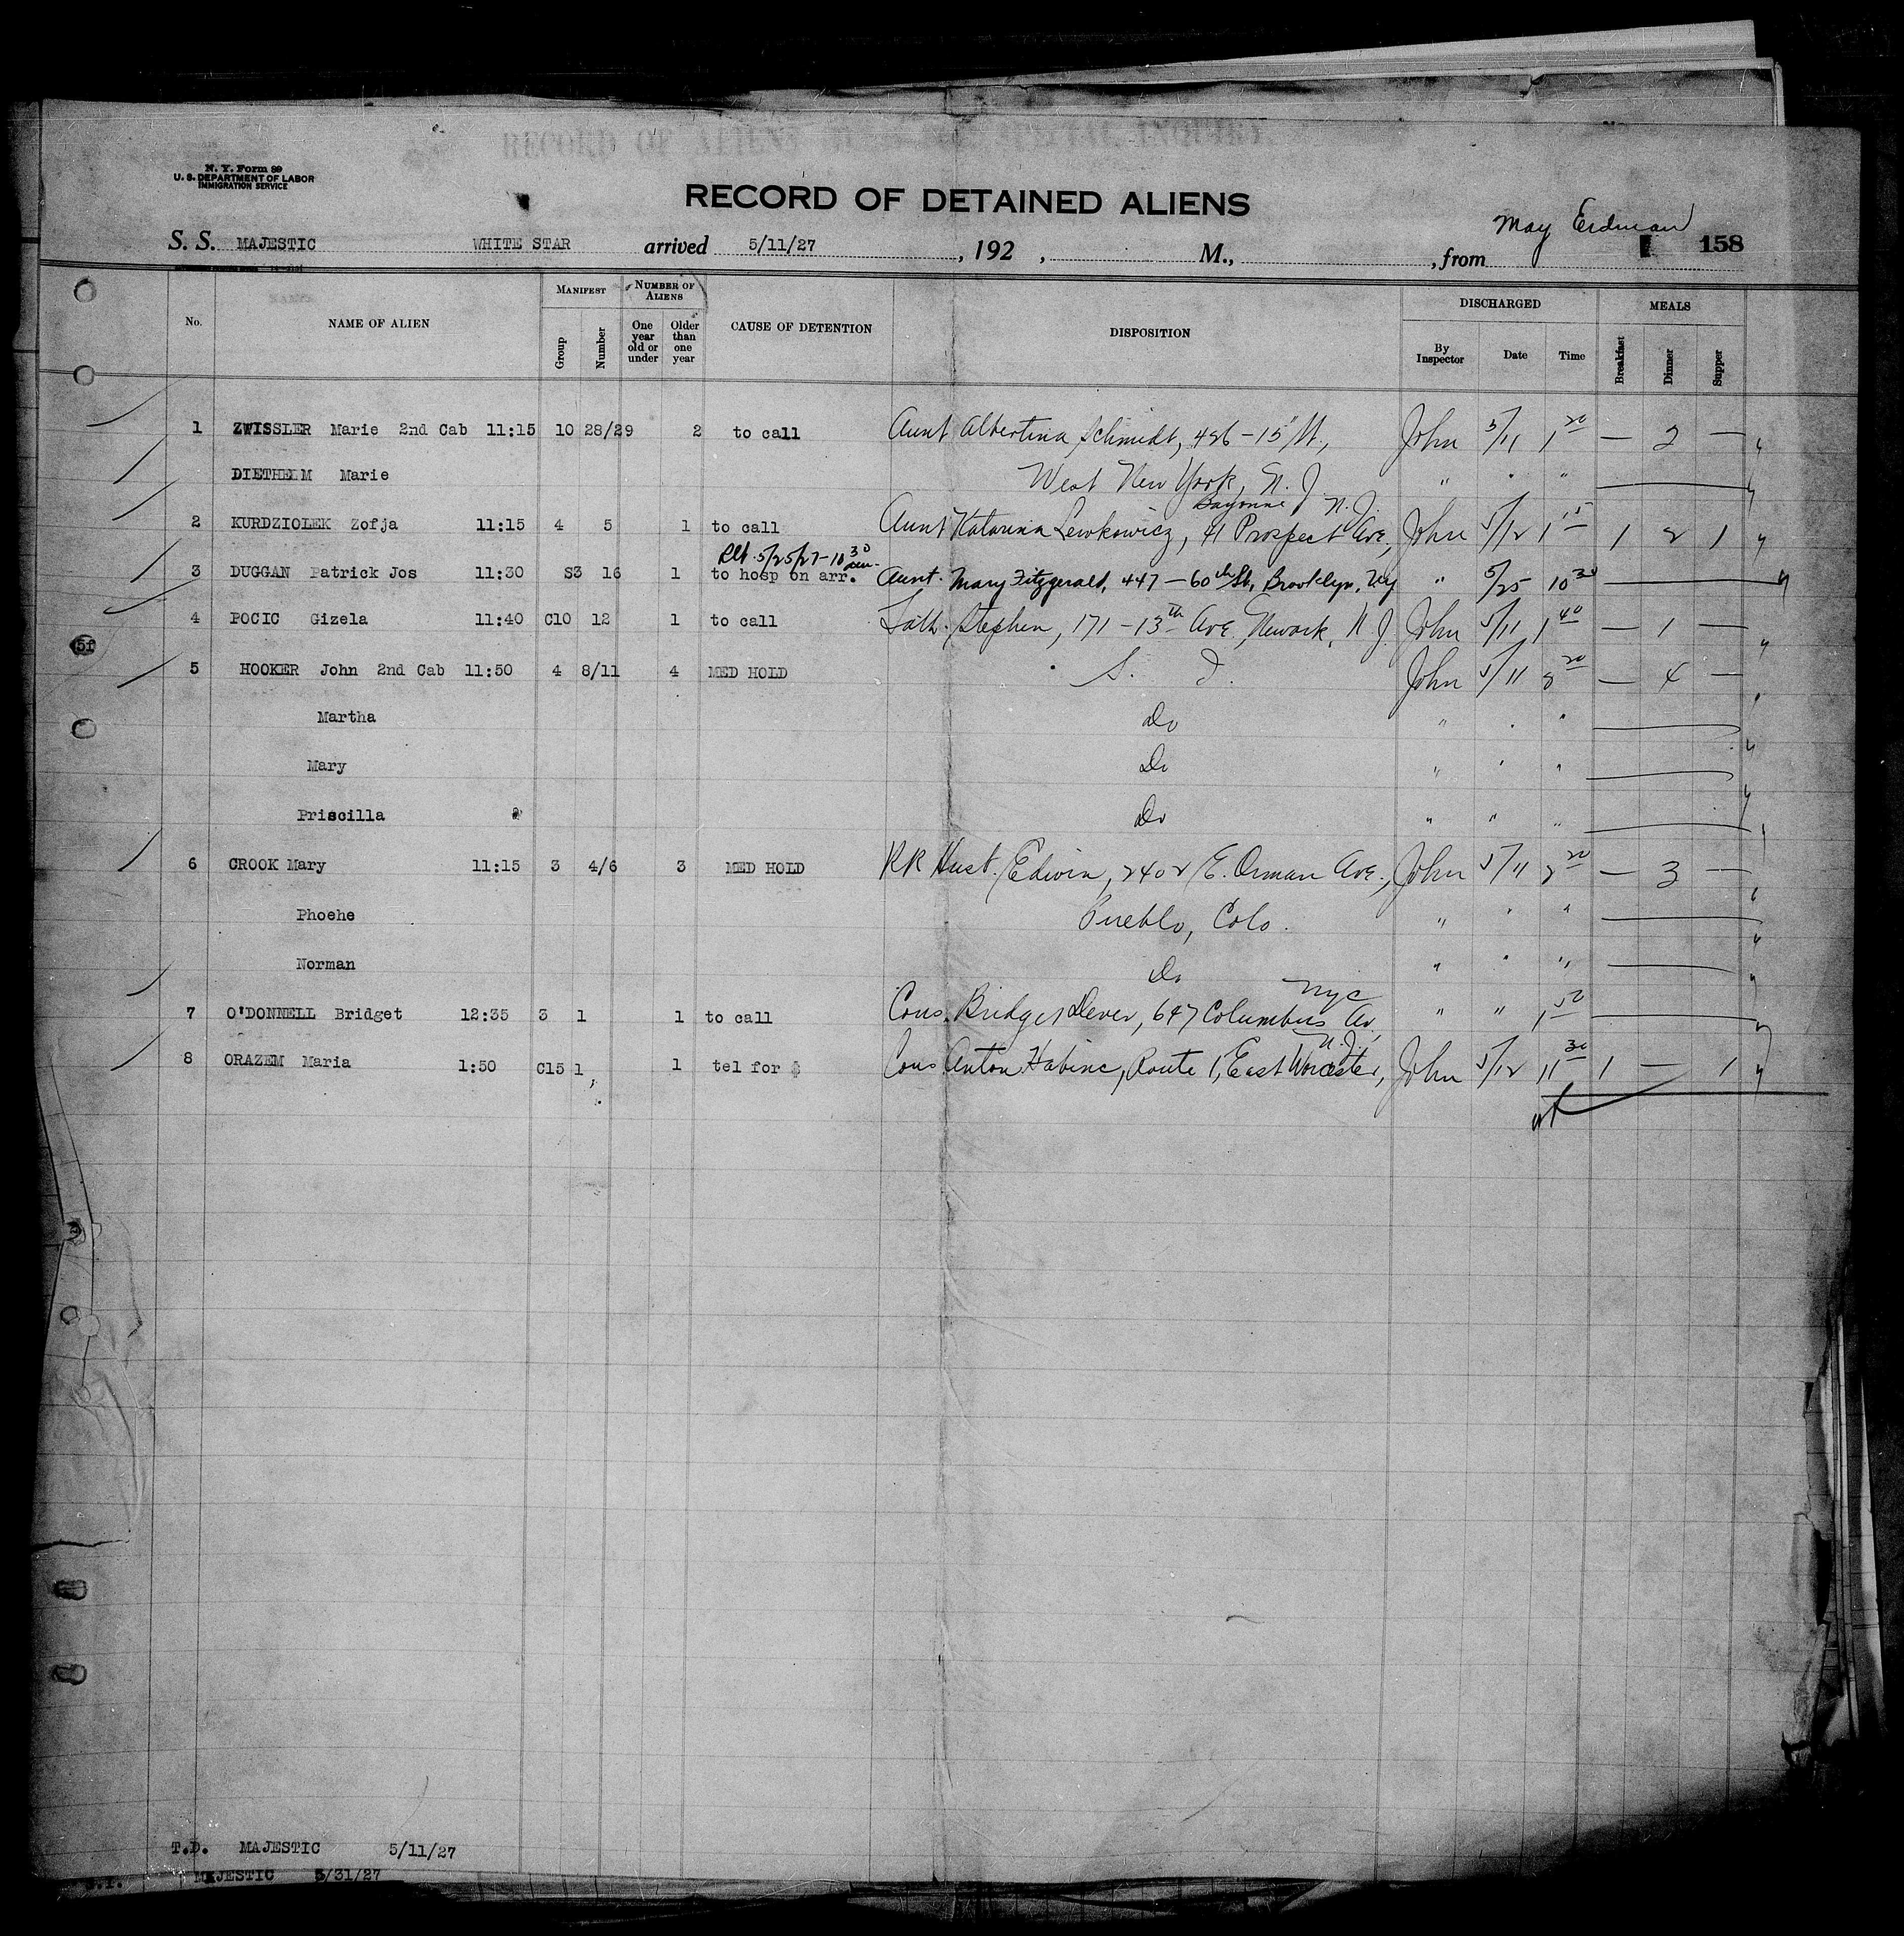 RECORD OF ALIENS HELD FOR SPECIAL INQUIRY
N. Y. Form 89
U. S. DEPARTMENT OF LABOR
IMMIGRATION SERVICE
RECORD OF DETAINED ALIENS
May Erdman
158
S. S. MAJESTIC WHITE STAR arrived 5/11/27, 192 , M., , from
No. NAME OF ALIEN MANIFEST Group Number NUMBER OF ALIENS One year old or under Older than one year CAUSE OF DETENTION DISPOSITION DISCHARGED By Inspector Date Time MEALS Breakfast Dinner Supper
1 ZWISSLER Marie 2nd Cab 11:15 10 28/29 2 to call Aunt Albertina Schmidt, 426 - 15" St., John 5/11 1 20 — 2 —
DIETHELM Marie West New York, N. J. " " "
Bayonne N. J.
2 KURDZIOLEK Zofja 11:15 4 5 1 to call Aunt Katarina Lewkowicz, 41 Prospect Ave., John 5/12 1 15 1 2 1
Rlt. 5/25/27-10 30 am.
3 DUGGAN Patrick Jos 11:30 S3 16 1 to hosp on arr. Aunt. Mary Fitzgerald, 447 - 60th St., Brooklyn, NY " 5/25 10 30
4 POCIC Gizela 11:40 C10 12 1 to call Fath. Stephen, 171 - 13th Ave. Newark, N J. John 5/11 1 40 — 1 —
5 HOOKER John 2nd Cab 11:50 4 8/11 4 MED HOLD S. I. John 5/11 2 20 — 4 —
Martha Do " " "
Mary Do " " "
Priscilla Do " " "
6 CROOK Mary 11:15 3 4/6 3 MED HOLD RR Husb. Edwin, 2402 E. Orman Ave., John 5/11 2 20 — 3 —
Phoehe Pueblo, Colo. " " "
Norman Do " " "
NYC
7 O'DONNELL Bridget 12:35 3 1 1 to call Cous. Bridget Dever, 647 Columbus Av. " " 1 50
N. J.
8 ORAZEM Maria 1:50 C15 1 1 tel for $ Cous Anton Habinc, Route 1, East Worcester, John 5/12 11 30 1 — 1
T.D. MAJESTIC 5/11/27
MAJESTIC 5/31/27